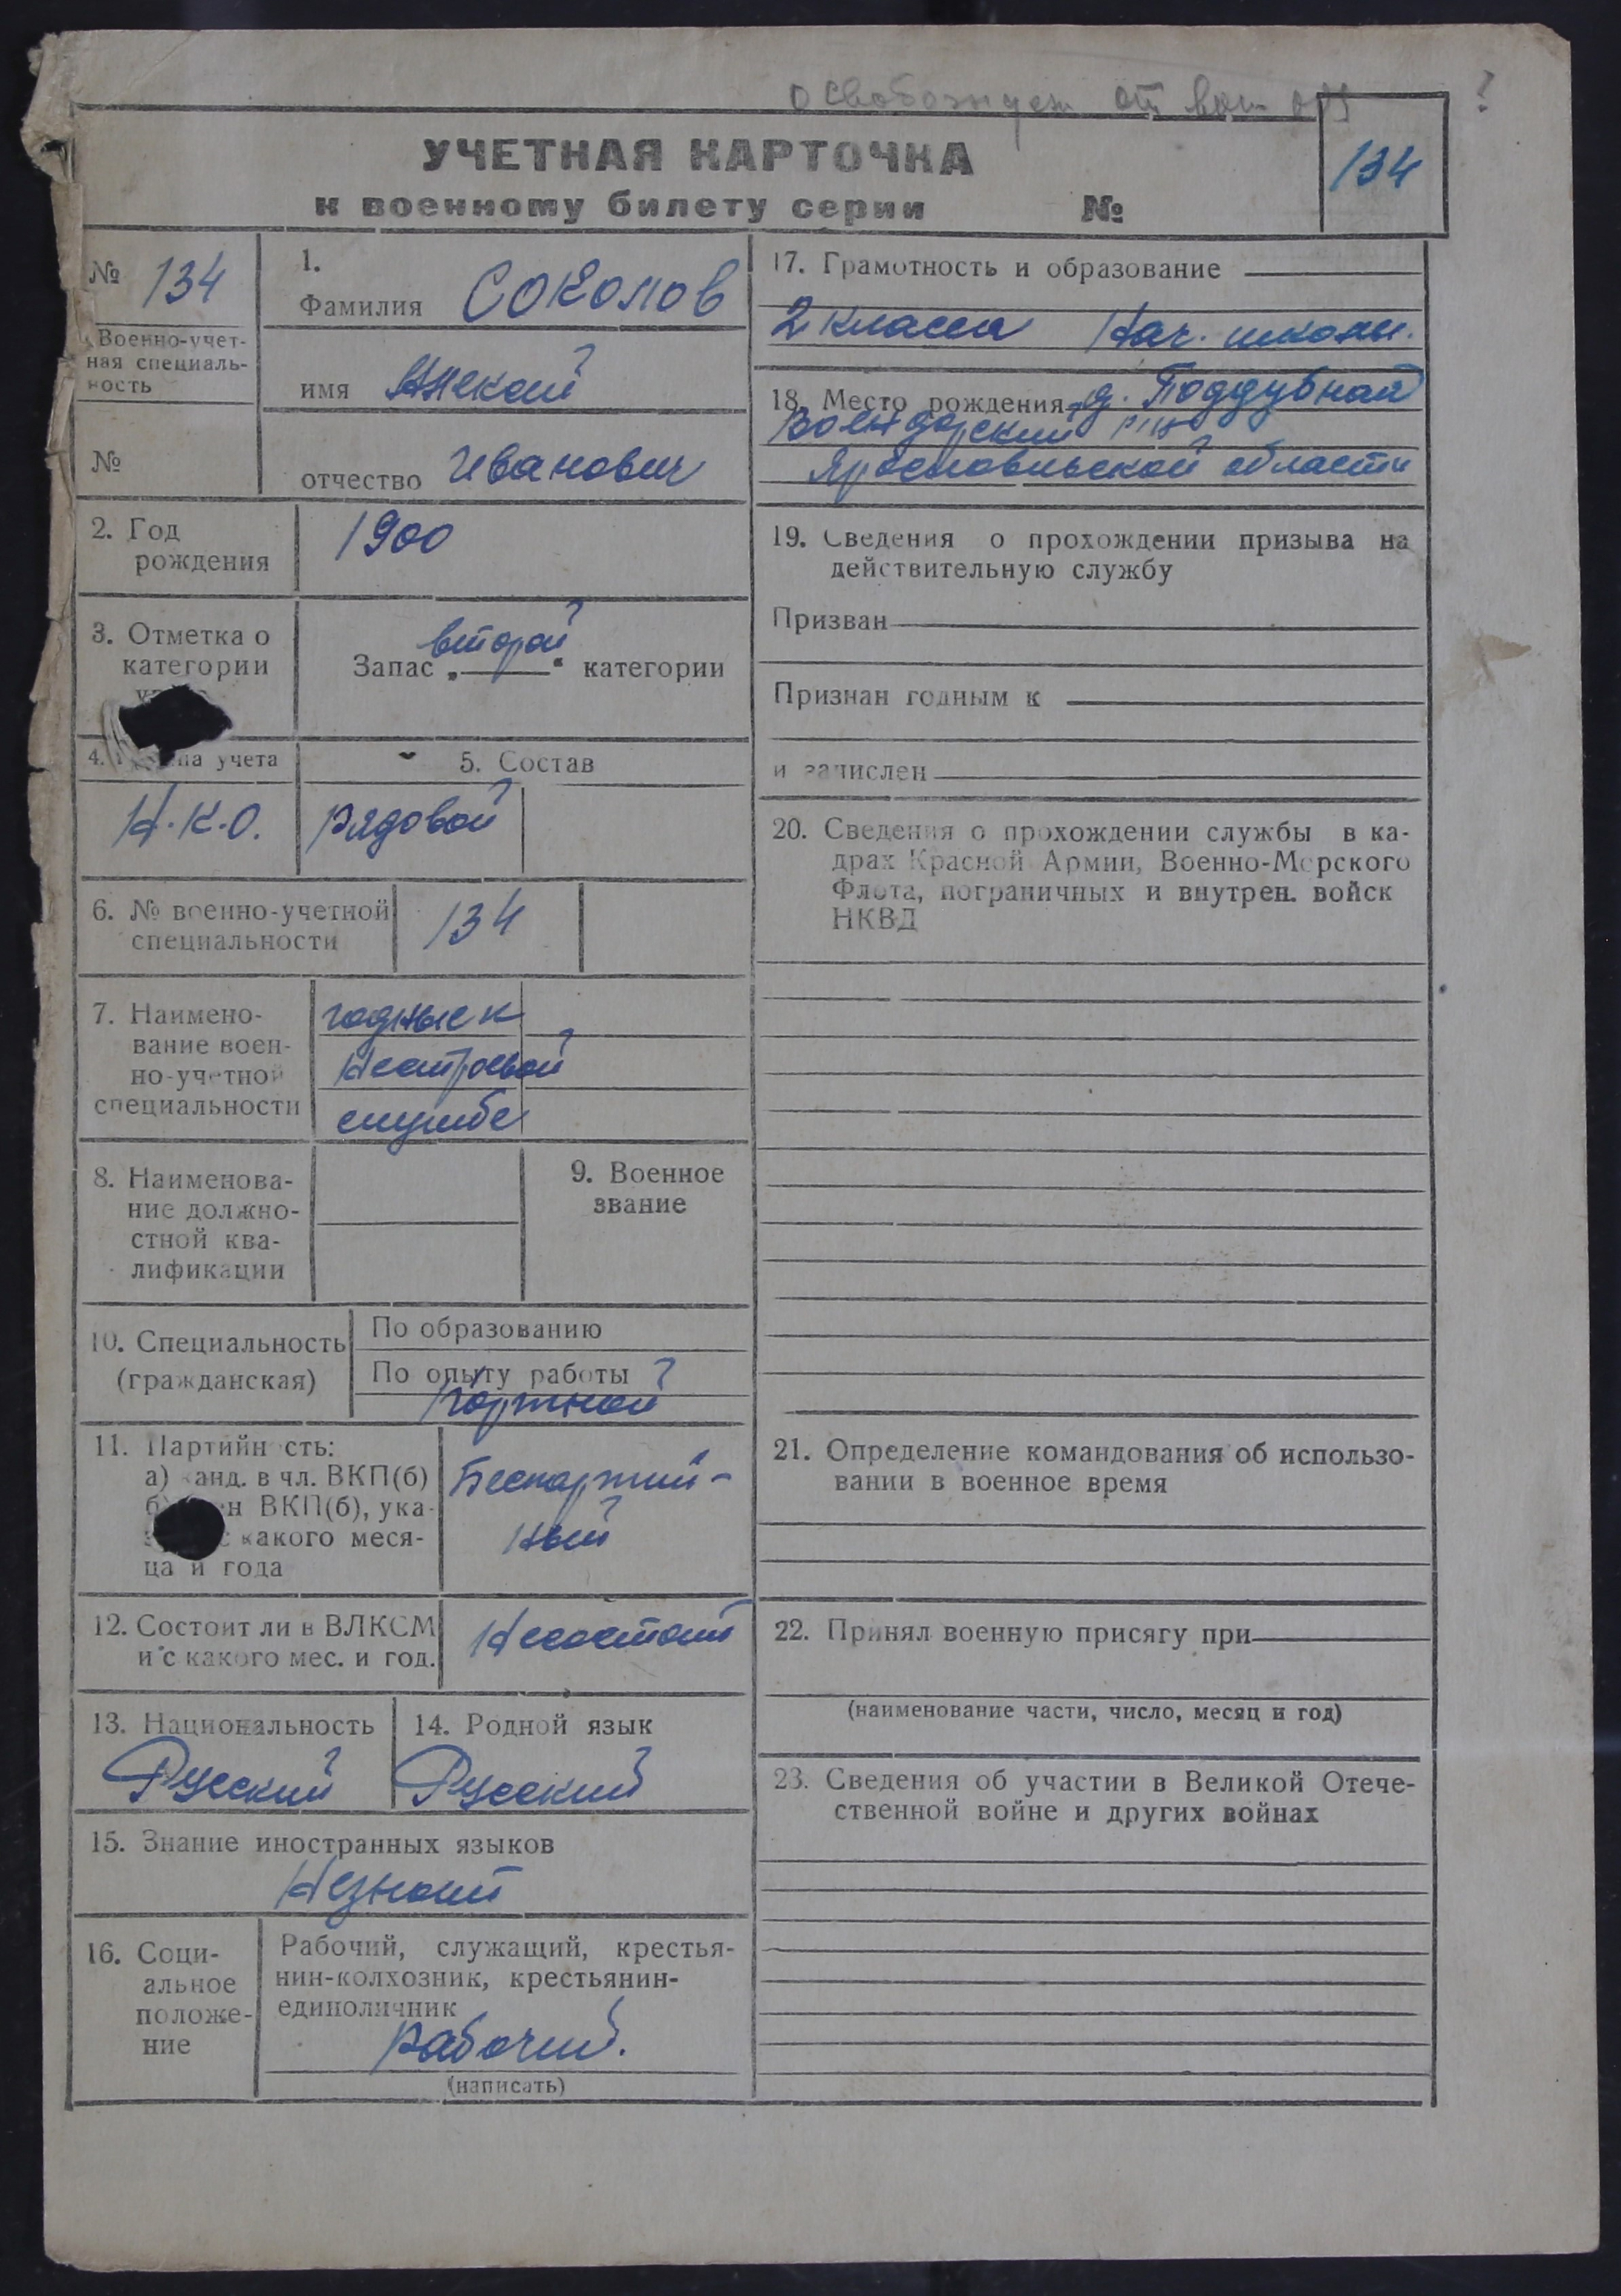 Освобожден от воен
?
УЧЕТНАЯ КАРТОЧКА
к военному билету серии №
134
№ 134
Военно-учет-
ная специаль-
ность
№
1.
Фамилия Соколов
имя Алексей
отчество Иванович
2. Год
рождения
1900
3. Отметка о
категории
Запас „второй“ категории
4. па учета
5. Состав
Н.К.О.
рядовой
6. № военно-учетной
специальности
134
7. Наимено-
вание воен-
но-учетной
специальности
годные к
нестроевой
службе
8. Наименова-
ние должно-
стной ква-
лификации
9. Военное
звание
10. Специальность
(гражданская)
По образованию
По опыту работы
портной
11. Партийн сть:
а) канд. в чл. ВКП(б)
б) ен ВКП(б), ука-
с какого меся-
ца и года
Беспартий-
ный
12. Состоит ли в ВЛКСМ
и с какого мес. и год.
Несостоит
13. Национальность
Русский
14. Родной язык
Русский
15. Знание иностранных языков
Незнает
16. Соци-
альное
положе-
ние
Рабочий, служащий, крестья-
нин-колхозник, крестьянин-
единоличник
рабочий.
(написать)
17. Грамотность и образование
2 класса Нач. школы.
18. Место рождения д. Поддубная
Ярославльской области
19. Сведения о прохождении призыва на
действительную службу
Призван
Признан годным к
и зачислен
20. Сведения о прохождении службы в ка-
драх Красной Армии, Военно-Морского
Флота, пограничных и внутрен. войск
НКВД
21. Определение командования об использо-
вании в военное время
22. Принял военную присягу при
(наименование части, число, месяц и год)
23. Сведения об участии в Великой Отече-
ственной войне и других войнах